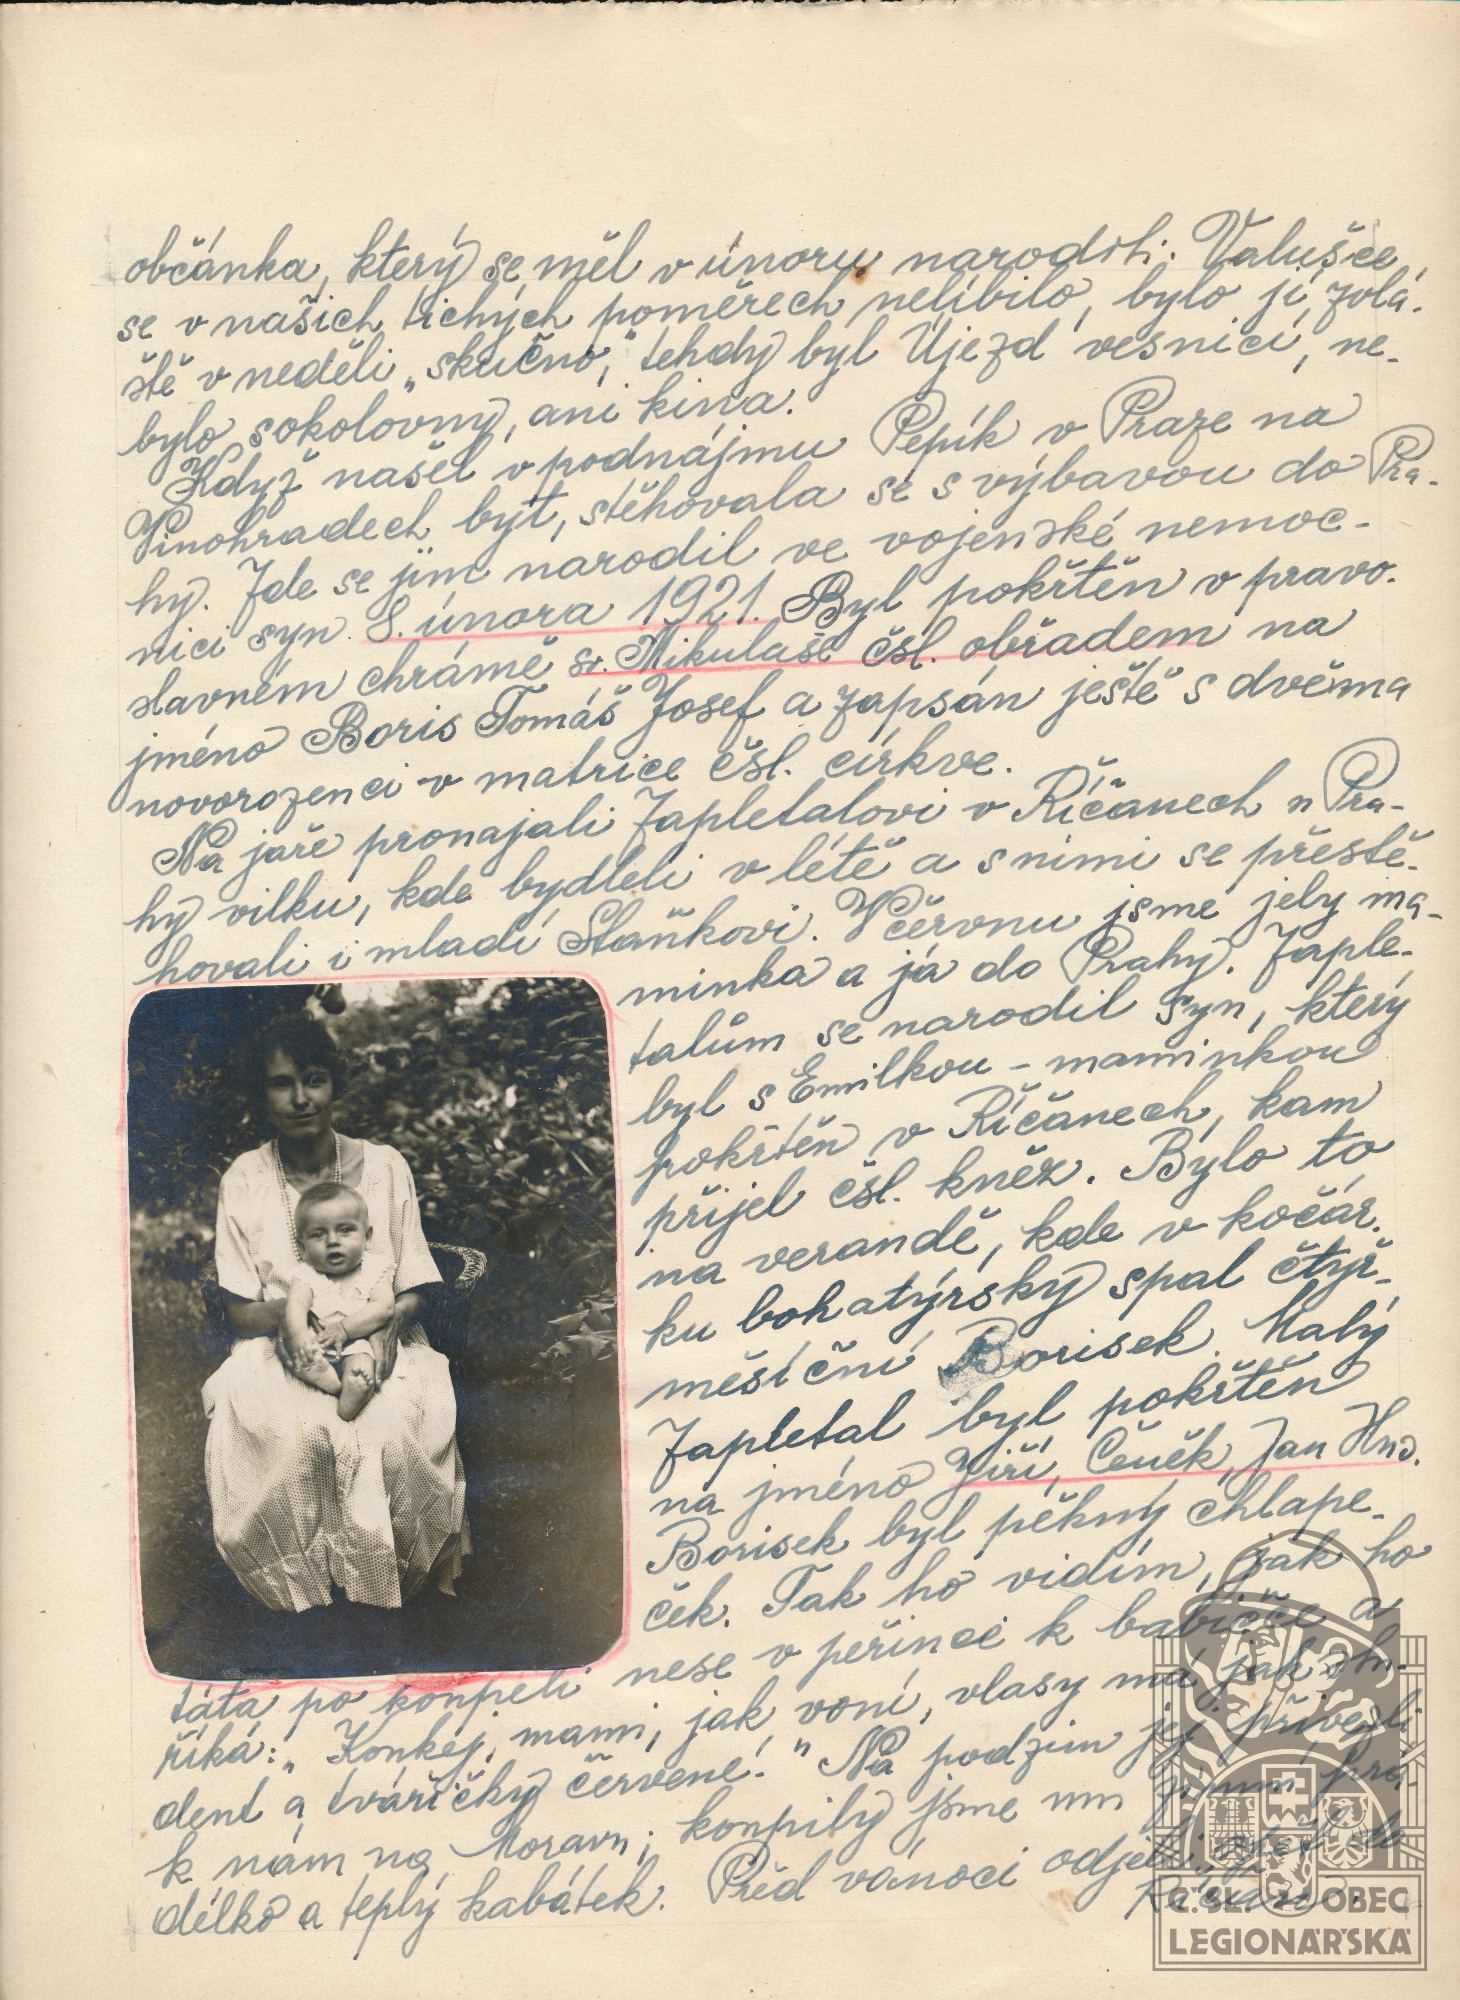 občánka, který se měl v únoru narodit. Valušce
se v našich tichých poměrech nelíbilo, bylo jí, zvlá-
ště v neděli „skučno," tehdy byl Újezd vesnicí, ne-
bylo sokolovny, ani kina.
Když našel v podnájmu Pepík v Praze na
Vinohradech byt, stěhovala se s výbavou do Pra-
hy. Zde se jim narodil ve vojenské nemoc-
nici syn 8. února 1921. Byl pokřtěn v pravo-
slavném chrámě sv. Mikuláše čsl. obřadem na
jméno Boris Tomáš Josef a zapsán ještě s dvěma
novorozenci v matrice čsl. církve.
Na jaře pronajali Zapletalovi v Říčanech u Pra-
hy vilku, kde bydleli v létě a s nimi se přestě-
hovali i mladí Staňkovi. V červnu jsme jely ma-
minka a já do Prahy. Zaple-
talům se narodil syn, který
byl s Emilkou - maminkou
pokřtěn v Říčanech, kam
přijel čsl. kněz. Bylo to
na verandě, kde v kočár-
ku bohatýrsky spal čtyř-
měsíční Borisek. Malý
Zapletal byl pokřtěn
na jméno Jiří, Čeněk, Jan Hus.
Borisek byl pěkný chlape-
ček. Tak ho vidím, jak ho
táta po koupeli nese v peřince k babičce a
říká: „Koukej, mami, jak voní, vlasy má jak stu-
dent a tvářičky červené!" Na podzim jej přivezli
k nám na Moravu; koupily jsme mu zimní prá-
délko a teplý kabátek. Před vánoci odjeli do
Říčan.
Č.SL. OBEC
LEGIONÁŘSKÁ